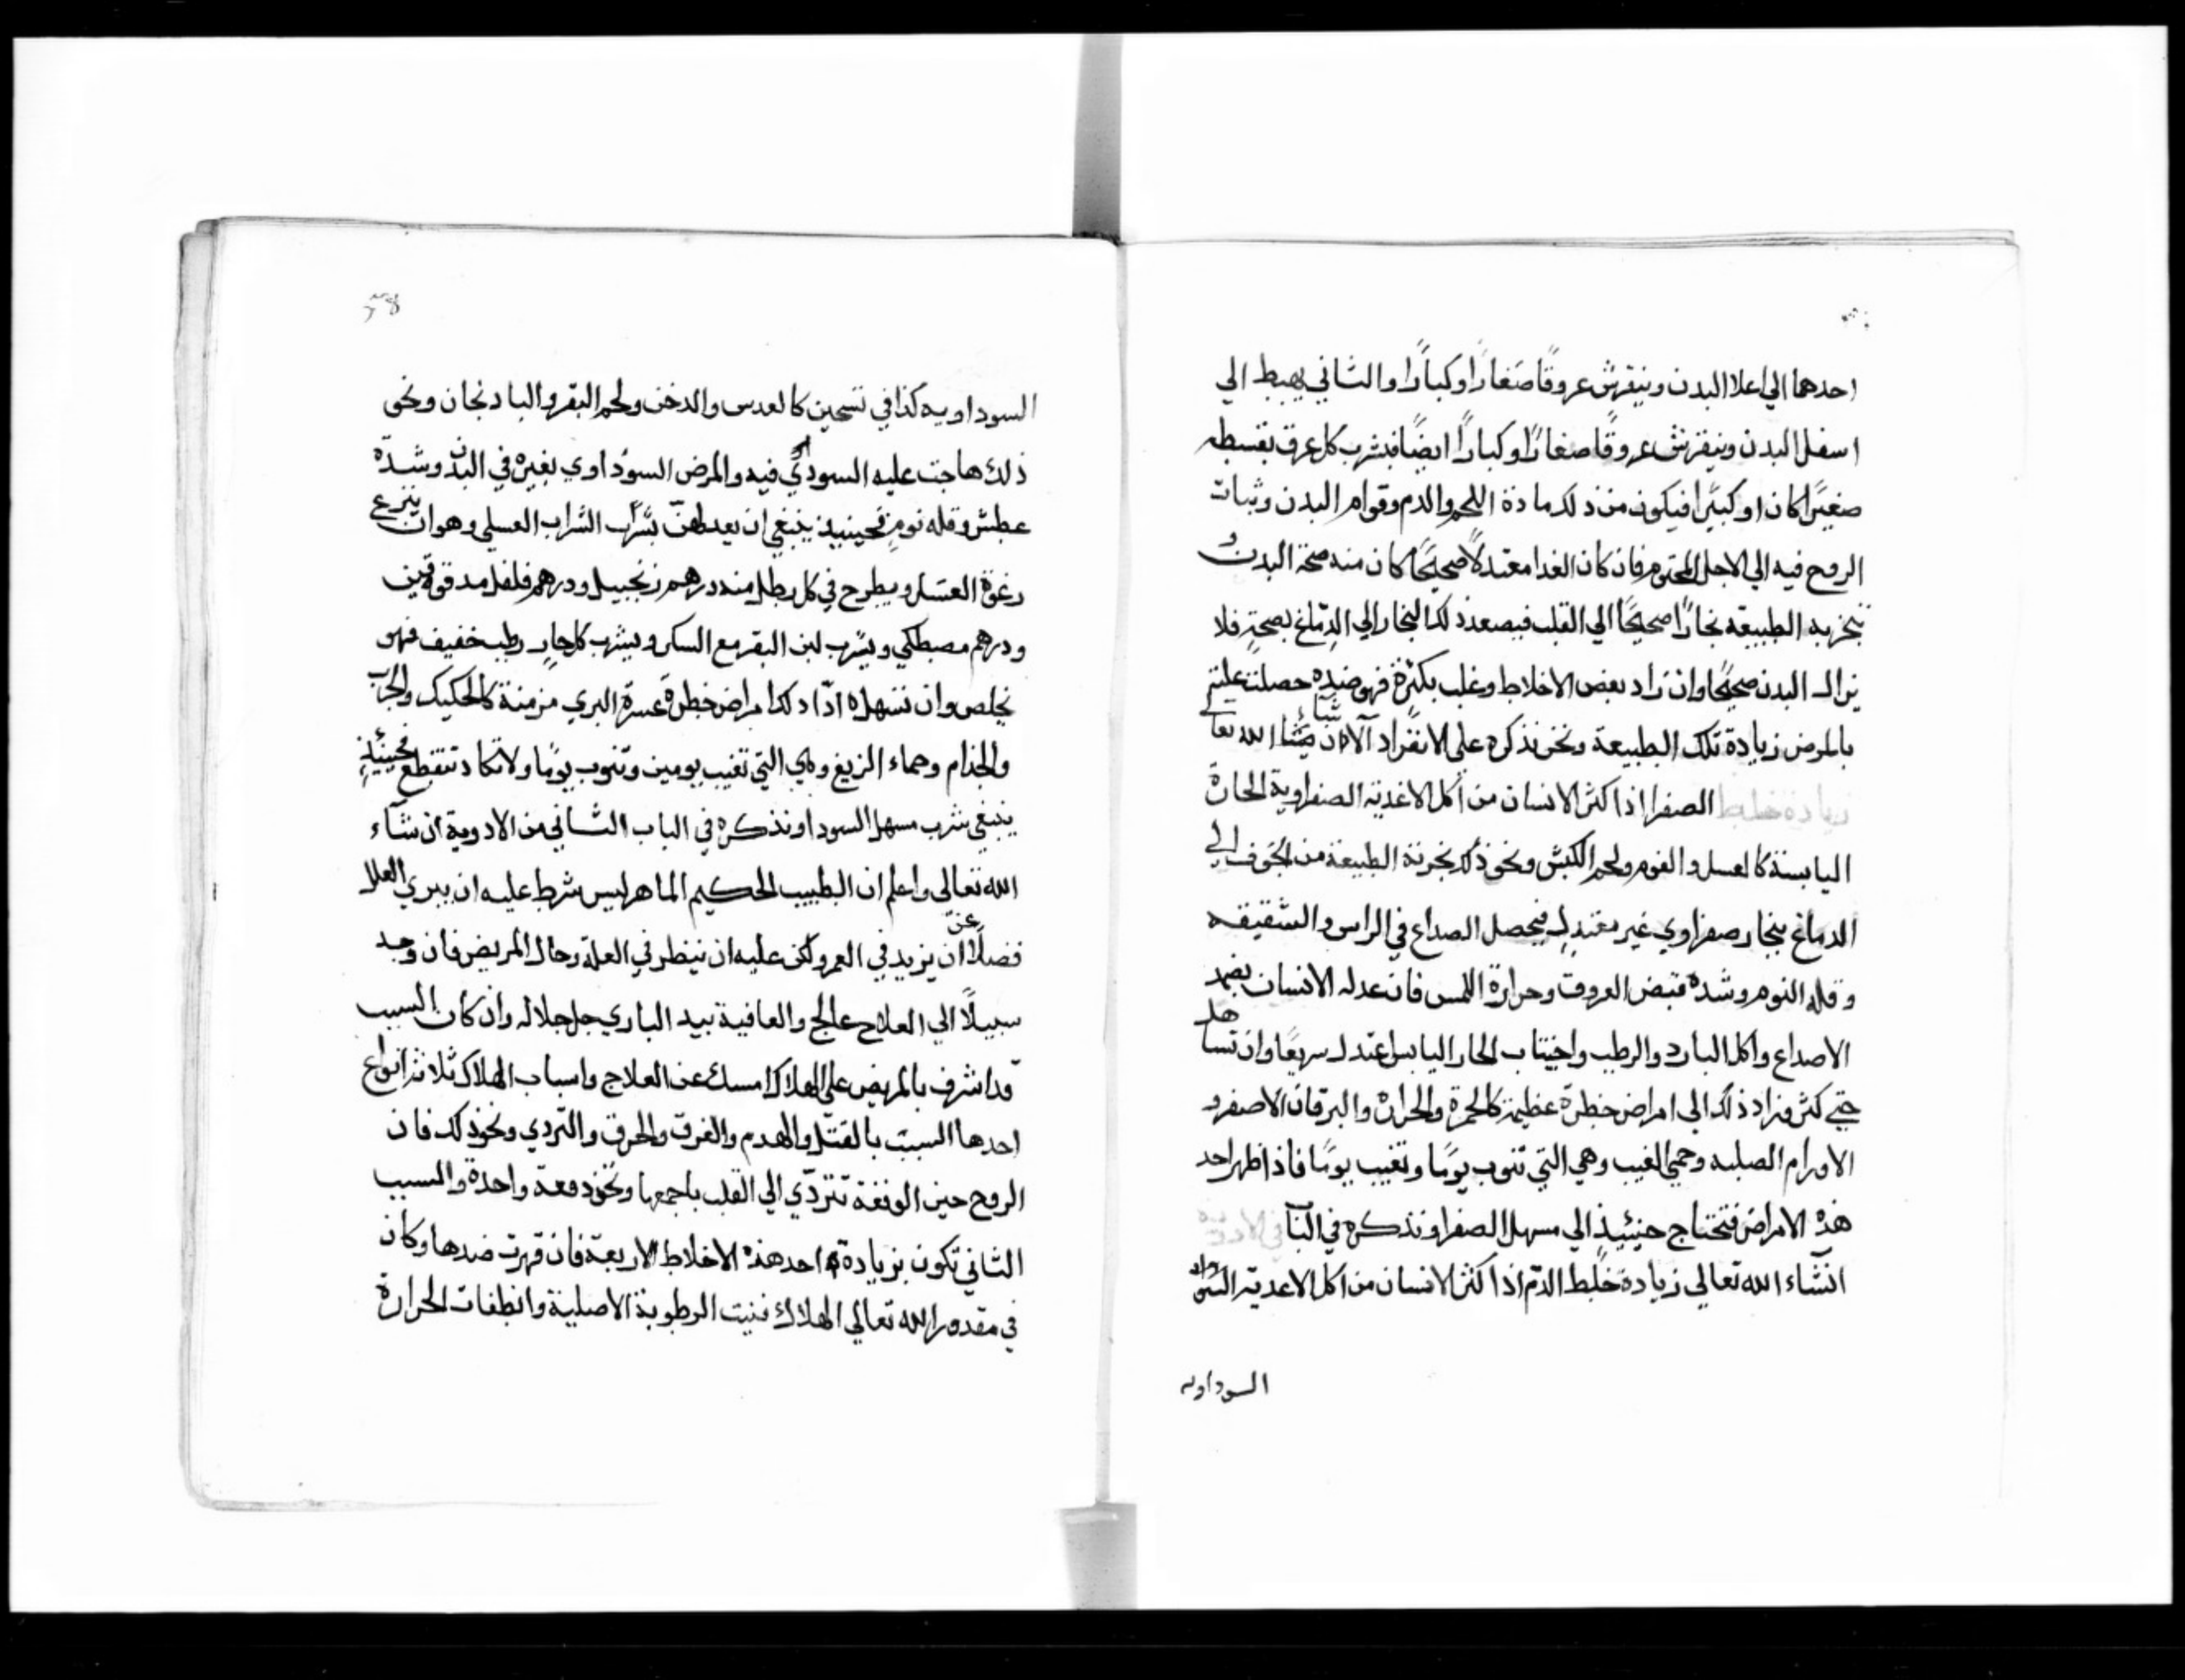 احدهما الي اعلا البدن وينفرش عروقًا صغارًا وكبارًا والثاني يهبط الي
اسفل البدن وينفرش عروقًا صغارًا وكبارًا ايضًا فيشرب كل عرق بقسطه
صغيرًا كان او كبيرًا فيكون من ذلك مادة اللحم والدم وقوام البدن وثبات
الروح فيه الي الاجل المحتوم فان كان الغدا معتدلًا صحيحًا كان منه صحة البدن و
تبخر به الطبيعه بخارًا صحيحًا الي القلب فيصعد ذلك البخار الي الدماغ بصحةٍ فلا
يزال البدن صحيحًا وان زاد بعض الاخلاط وغلب بكثرة قهر ضده حصلت عليه
بالمرض زيادة تلك الطبيعة ونحن نذكره علي الانفراد الآن ان شاء الله تعا
زيادة خلط الصفرا اذا اكثر الانسان من اكل الاغدية الصفراوية الحارة
اليابسة كالعسل والفوم ولحم الكبش ونحو ذلك بخرته الطبيعة من الجوف الي
الدماغ بخار صفراوي غير معتدل فيحصل الصداع في الراس والشقيقه
وقله النوم وشده قبض العروق وحرارة اللمس فان عدله الانسان بضد
الاصداع واكل البارد والرطب واجتناب الحار اليابس اعتدل سريعًا وان تساهل
حتي كثر وزاد ذلك الي امراض خطرة عظيمة كالحمرة والحرارة واليرقان الاصفر و
الاورام الصلبه وحمي الغيب وهي التي تنوب يومًا وتغيب يومًا فاذا ظهر احد
هذه الامراض فتحتاج حينيذٍ الي مسهل الصفرا ونذكره في الباب في الادوية
انشاء الله تعالي زيادة خلط الدم اذا اكثر الانسان من اكل الاغدية السوداويه
السوداويه
السوداويه كذا في تسحين كالعدس والدخن ولحم البقر والبادنجان ونحو
ذلك هاجت عليه السودا فيه والمرض السوداوي بغيره في البدن وشدّة
عطش وقله نومٍ فحينيذ ينبغي ان يعدلهنّ بشراب الشراب العسلي وهو ان ينزع
رغوة العسل ويطرح في كل رطل منه درهم زنجبيل ودرهم فلفل مدقوقين
ودرهم مصطكي ويشرب لبن البقر مع السكر ويشرب كل حارٍ رطب خفيف فهو
يخلص وان تسهله ادّا ذلك امراض خطرة عسرة البري مزمنة كالحكيك والجرب
والجذام وحماء الربع وهي التي تغيب يومين وتنوب يومًا ولا تكاد تنقطع فحينئيذٍ
ينبغي شرب مسهل السودا ونذكره في الباب الثاني من الادوية ان شآء
الله تعالى واعلم ان الطبيب الحكيم الماهر ليس شرط عليه ان يبري العلل
فضلًا عن ان يزيد في العمر ولكن عليه ان ينظر في العلة وحال المريض فان وجد
سبيلًا الي العلاج عالج والعافية بيد الباري جل جلاله وان كان السبب
قد اشرف بالمريض علي الهلاك امسك عن العلاج واسباب الهلاك ثلاثة انواع
احدها السبب بالقتل والهدم والغرق والحرق والتردي ونحو ذلك فان
الروح حين الوقفة تتردّي الي القلب باجمعها ونحو دفعة واحدة والسبب
الثاني تكون بزيادة احد هذه الاخلاط الاربعة فان قهرت ضدها وكان
في مقدور الله تعالي الهلاك فنيت الرطوبة الاصلية وانطفات الحرارة